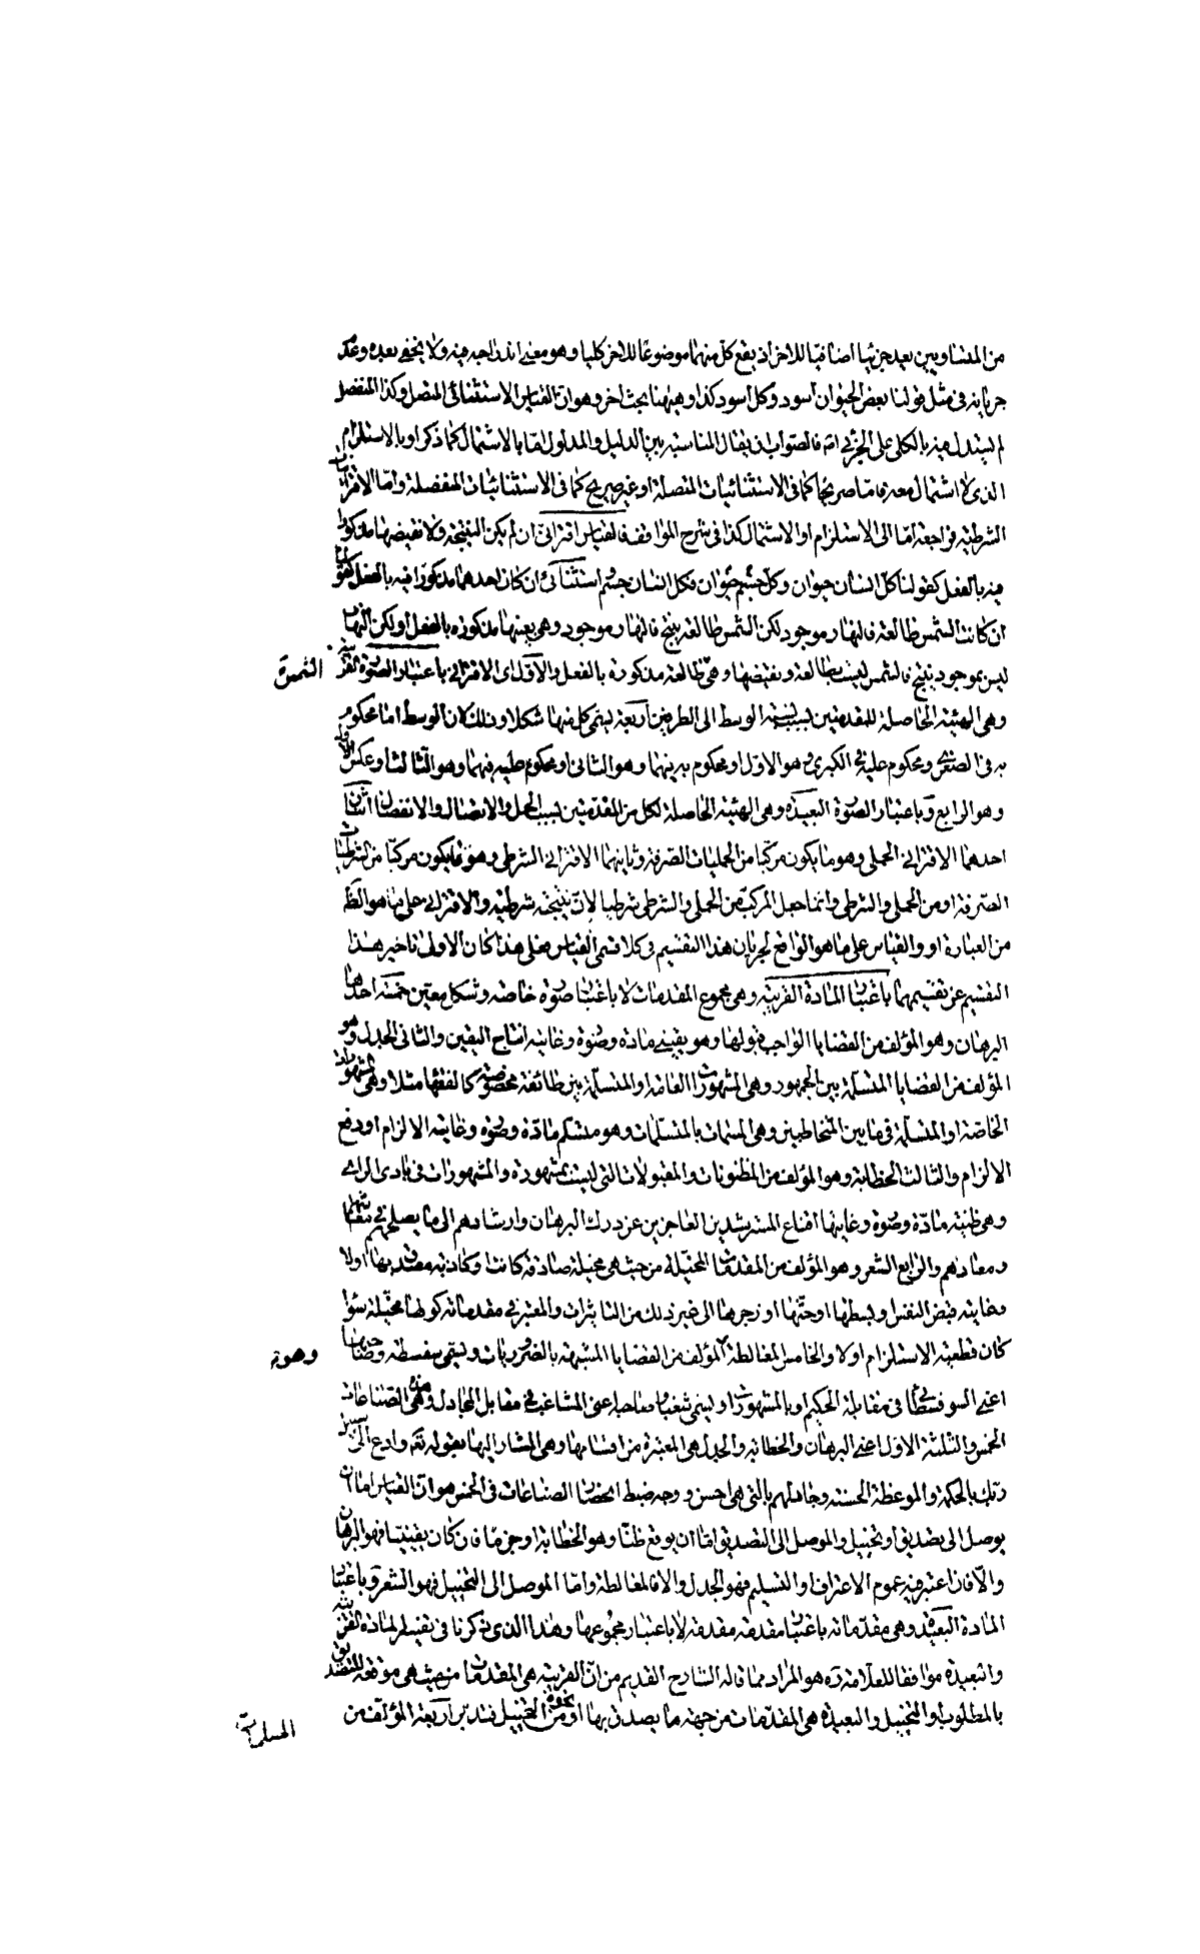 من المتساويين يعد جزئيا اضافيا للاخر اذ يقع كل منهما موضوعا للاخر كليا وهو معنى اندراجه فيه ولا يخفى بعده وعدم
جريانه فى مثل قولنا بعض الحيوان اسود وكل اسود كذا وههنا بحث اخر وهو ان القياس الاستثنائى المتصل وكذا المنفصل
لم يستدل فيه بالكلى على الجزئى اه فالصواب ان يقال المناسبة بين الدليل والمدلول اما بالاشتمال كما ذكر او بالاستلزام
الذى لا اشتمال معه فاما صريحا كما فى الاستثنائيات المتصلة او غير صريح كما فى الاستثنائيات المنفصلة واما الاقترانيات
الشرطية فراجعة اما الى الاستلزام او الاشتمال كذا فى شرح المواقف فالقياس اقترانى ان لم يكن النتيجة ولا نقيضها مذكورا
فيه بالفعل كقولنا كل انسان حيوان وكل حيوان جسم فكل انسان جسم استثنائى ان كان احدهما مذكورا فيه بالفعل كقولنا
ان كانت الشمس طالعة فالنهار موجود لكن الشمس طالعة ينتج فالنهار موجود وهى بعينها مذكورة بالفعل او لكن النهار
ليس بموجود ينتج فالشمس ليست بطالعة ونقيضها وهى طالعة مذكورة بالفعل والاول اى الاقترانى باعتبار الصورة القريبة
الشمس
وهى الهيئة الحاصلة للمقدمتين بسبب نسبة الوسط الى الطرفين اربعة يسمى كل منها شكلا وذلك لان الوسط اما محكوم
به فى الصغرى ومحكوم عليه فى الكبرى وهو الاول او محكوم به فيهما وهو الثانى او محكوم عليه فيهما وهو الثالث او عكس الاول
وهو الرابع وباعتبار الصورة البعيدة وهى الهيئة الحاصلة لكل من المقدمتين بسبب الحمل والاتصال والانفصال اثنان
احدهما الاقترانى الحملى وهو ما يكون مركبا من الحمليات الصرفة وثانيهما الاقترانى الشرطى وهو ما يكون مركبا من الشرطيات
الصرفة او من الحملى والشرطى وانما جعل المركب من الحملى والشرطى شرطيا لان نتيجته شرطية والاقترانى على ما هو الظ
من العبارة او والقياس على ما هو الواقع لجريان هذا التقسيم فى كلا قسمى القياس فعلى هذا كان الاولى تاخير هذا
التقسيم عن تقسيمهما باعتبار المادة القريبة وهى مجموع المقدمات لا باعتبار صورة خاصة وشكل معين خمسة احدها
البرهان وهو المؤلف من القضايا الواجب قبولها وهو يقينى مادة وصورة وغايته انتاج اليقين والثانى الجدل وهو
المؤلف من القضايا المتسلمة بين الجمهور وهى المشهورات العامة او المتسلمة بين طائفة مخصوصة كالفقها مثلا وهى المشهورات
الخاصة او المتسلمة فيما بين المتخاطبين وهى المسماة بالمتسلمات وهو متسلم مادة وصورة وغايته الالزام او دفع
الالزام والثالث الخطابة وهو المؤلف من المظنونات والمقبولات التى ليست بمشهورة والمشهورات فى بادى الراى
وهى ظنية مادة وصورة وغايتها اقناع المسترشدين العاجزين عن درك البرهان وارشادهم الى ما يصلحهم فى معاشهم
ومعادهم والرابع الشعر وهو المؤلف من المقدمات المخيلة من حيث هى مخيلة صادقة كانت او كاذبة مصدق بها اولا
وغايته قبض النفس او بسطها او حثها او زجرها الى غير ذلك من التاثرات والمعتبر فى مقدماته كونها مخيلة سواء
كان قطعية الاستلزام او لا والخامس المغالطة المؤلف من القضايا المشبهة بالضروريات ويسمى سفسطة وصاحبها
وهوة
اعنى السوفسطائى فى مقابلة الحكيم او بالمشهورات ويسمى شغبا وصاحبه اعنى المشاغب فى مقابل المجادل وهذه هى الصناعات
الخمس والثلثة الاول اعنى البرهان والخطابة والجدل هى المعتبرة من اقسامها وهى المشار اليها بقوله تعه وادع الى سبيل
ربك بالحكمة والموعظة الحسنة وجادلهم بالتى هى احسن ووجه ضبط انحصار الصناعات فى الخمس هو ان القياس اما ان
يوصل الى تصديق او تخييل والموصل الى التصديق اما ان يوقع ظنا وهو الخطابة او جزما فان كان يقينيا فهو البرهان
والا فان اعتبر فيه عموم الاعتراف او التسليم فهو الجدل والا فالمغالطة واما الموصل الى التخييل فهو الشعر وباعتبار
المادة البعيدة وهى مقدماته باعتبار مقدمة مقدمة لا باعتبار مجموعها وهذا الذى ذكرنا فى تفسير المادة القريبة
والبعيدة موافقا للعلامة ره هو المراد مما قاله الشارح القديم من ان القريبة هى المقدمات من حيث هى موقعة للتصديق
بالمطلوب او التخييل والبعيدة هى المقدمات من جهة ما يصدق بها او نحوه من التخييل فتدبر اربعة المؤلف من
المسلمة